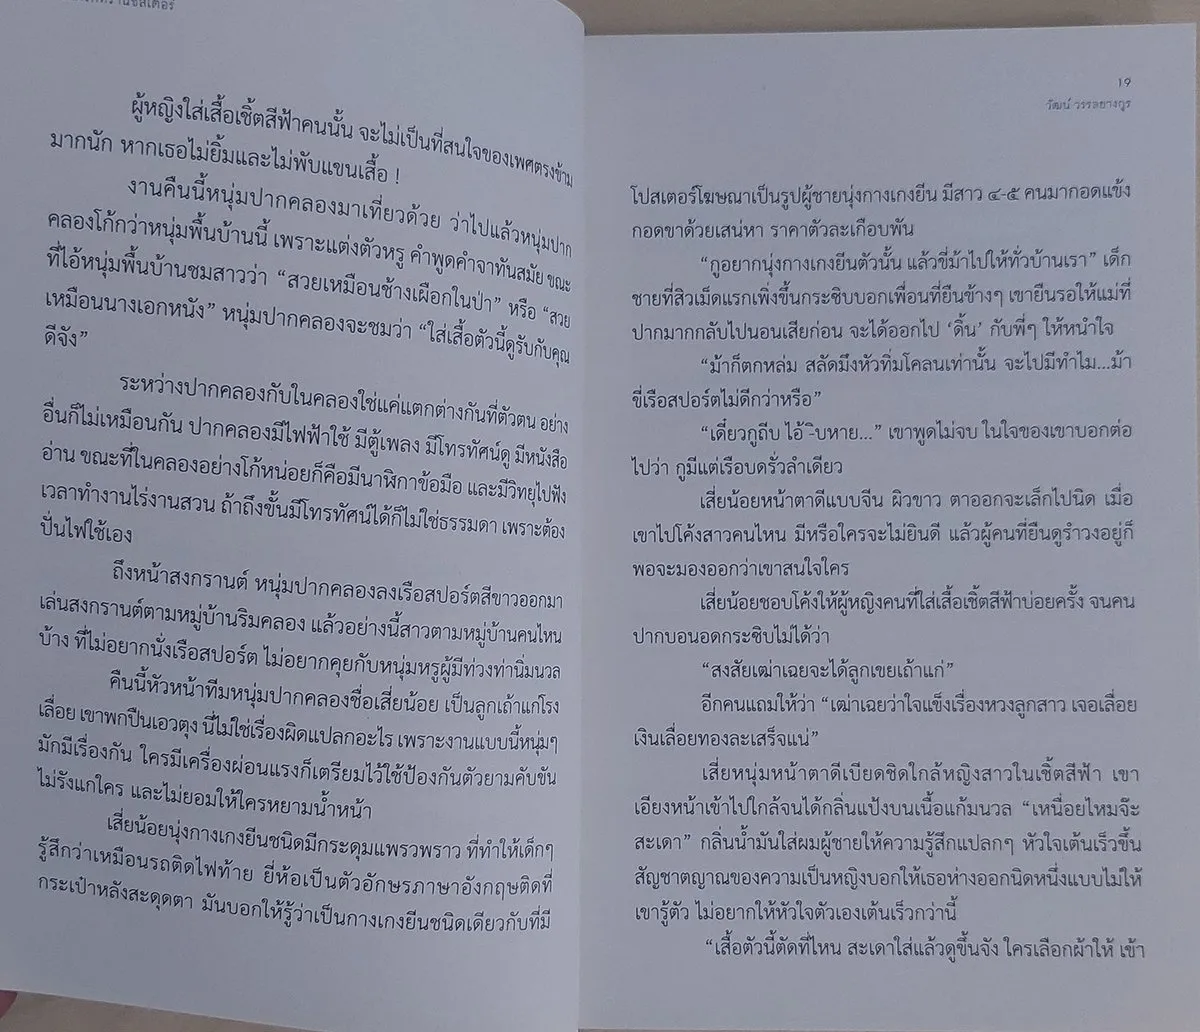 ผู้หญิงใส่เสื้อเชิ้ตสีฟ้าคนนั้น จะไม่เป็นที่สนใจของเพศตรงข้าม
มากนัก หากเธอไม่ยิ้มและไม่พับแขนเสื้อ !
งานคืนนี้หนุ่มปากคลองมาเที่ยวด้วย ว่าไปแล้วหนุ่มปาก
คลองโก้กว่าหนุ่มพื้นบ้านนี้ เพราะแต่งตัวหรู คำพูดคำจาทันสมัย ขณะ
ที่ไอ้หนุ่มพื้นบ้านชมสาวว่า “สวยเหมือนช้างเผือกในป่า” หรือ “สวย
เหมือนนางเอกหนัง” หนุ่มปากคลองจะชมว่า “ใส่เสื้อตัวนี้ดูรับกับคุณ
ดีจัง”
ระหว่างปากคลองกับในคลองใช่แค่แตกต่างกันที่ตัวตน อย่าง
อื่นก็ไม่เหมือนกัน ปากคลองมีไฟฟ้าใช้ มีตู้เพลง มีโทรทัศน์ดู มีหนังสือ
อ่าน ขณะที่ในคลองอย่างโก้หน่อยก็คือมีนาฬิกาข้อมือ และมีวิทยุไปฟัง
เวลาทำงานไร่งานสวน ถ้าถึงขั้นมีโทรทัศน์ได้ก็ไม่ใช่ธรรมดา เพราะต้อง
ปั่นไฟใช้เอง
ถึงหน้าสงกรานต์ หนุ่มปากคลองลงเรือสปอร์ตสีขาวออกมา
เล่นสงกรานต์ตามหมู่บ้านริมคลอง แล้วอย่างนี้สาวตามหมู่บ้านคนไหน
บ้าง ที่ไม่อยากนั่งเรือสปอร์ต ไม่อยากคุยกับหนุ่มหรูผู้มีท่วงท่านิ่มนวล
คืนนี้หัวหน้าทีมหนุ่มปากคลองชื่อเสี่ยน้อย เป็นลูกเถ้าแก่โรง
เลื่อย เขาพกปืนเอวตุง นี่ไม่ใช่เรื่องผิดแปลกอะไร เพราะงานแบบนี้หนุ่มๆ
มักมีเรื่องกัน ใครมีเครื่องผ่อนแรงก็เตรียมไว้ใช้ป้องกันตัวยามคับขัน
ไม่รังแกใคร และไม่ยอมให้ใครหยามน้ำหน้า
เสี่ยน้อยนุ่งกางเกงยีนชนิดมีกระดุมแพรวพราว ที่ทำให้เด็กๆ
รู้สึกว่าเหมือนรถติดไฟท้าย ยี่ห้อเป็นตัวอักษรภาษาอังกฤษติดที่
กระเป๋าหลังสะดุดตา มันบอกให้รู้ว่าเป็นกางเกงยีนชนิดเดียวกับที่มี
19
วัฒน์ วรรลยางกูร
โปสเตอร์โฆษณาเป็นรูปผู้ชายนุ่งกางเกงยีน มีสาว ๔-๕ คนมากอดแข้ง
กอดขาด้วยเสน่หา ราคาตัวละเกือบพัน
“กูอยากนุ่งกางเกงยีนตัวนั้น แล้วขี่ม้าไปให้ทั่วบ้านเรา” เด็ก
ชายที่สิวเม็ดแรกเพิ่งขึ้นกระซิบบอกเพื่อนที่ยืนข้างๆ เขายืนรอให้แม่ที่
ปากมากกลับไปนอนเสียก่อน จะได้ออกไป ‘ดิ้น’ กับพี่ๆ ให้หนำใจ
“ม้าก็ตกหล่ม สลัดมึงหัวทิ่มโคลนเท่านั้น จะไปมีทำไม...ม้า
ขี่เรือสปอร์ตไม่ดีกว่าหรือ”
“เดี๋ยวกูถีบ ไอ้ -ิบหาย...” เขาพูดไม่จบ ในใจของเขาบอกต่อ
ไปว่า กูมีแต่เรือบดรั่วลำเดียว
เสี่ยน้อยหน้าตาดีแบบจีน ผิวขาว ตาออกจะเล็กไปนิด เมื่อ
เขาไปโค้งสาวคนไหน มีหรือใครจะไม่ยินดี แล้วผู้คนที่ยืนดูรำวงอยู่ก็
พอจะมองออกว่าเขาสนใจใคร
เสี่ยน้อยชอบโค้งให้ผู้หญิงคนที่ใส่เสื้อเชิ้ตสีฟ้าบ่อยครั้ง จนคน
ปากบอนอดกระซิบไม่ได้ว่า
“สงสัยเฒ่าเฉยจะได้ลูกเขยเถ้าแก่”
อีกคนแถมให้ว่า “เฒ่าเฉยว่าใจแข็งเรื่องหวงลูกสาว เจอเลื่อย
เงินเลื่อยทองละเสร็จแน่”
เสี่ยหนุ่มหน้าตาดีเบียดชิดใกล้หญิงสาวในเชิ้ตสีฟ้า เขา
เอียงหน้าเข้าไปใกล้จนได้กลิ่นแป้งบนเนื้อแก้มนวล “เหนื่อยไหมจ๊ะ
สะเดา” กลิ่นน้ำมันใส่ผมผู้ชายให้ความรู้สึกแปลกๆ หัวใจเต้นเร็วขึ้น
สัญชาตญาณของความเป็นหญิงบอกให้เธอห่างออกนิดหนึ่งแบบไม่ให้
เขารู้ตัว ไม่อยากให้หัวใจตัวเองเต้นเร็วกว่านี้
“เสื้อตัวนี้ตัดที่ไหน สะเดาใส่แล้วดูขึ้นจัง ใครเลือกผ้าให้ เข้า